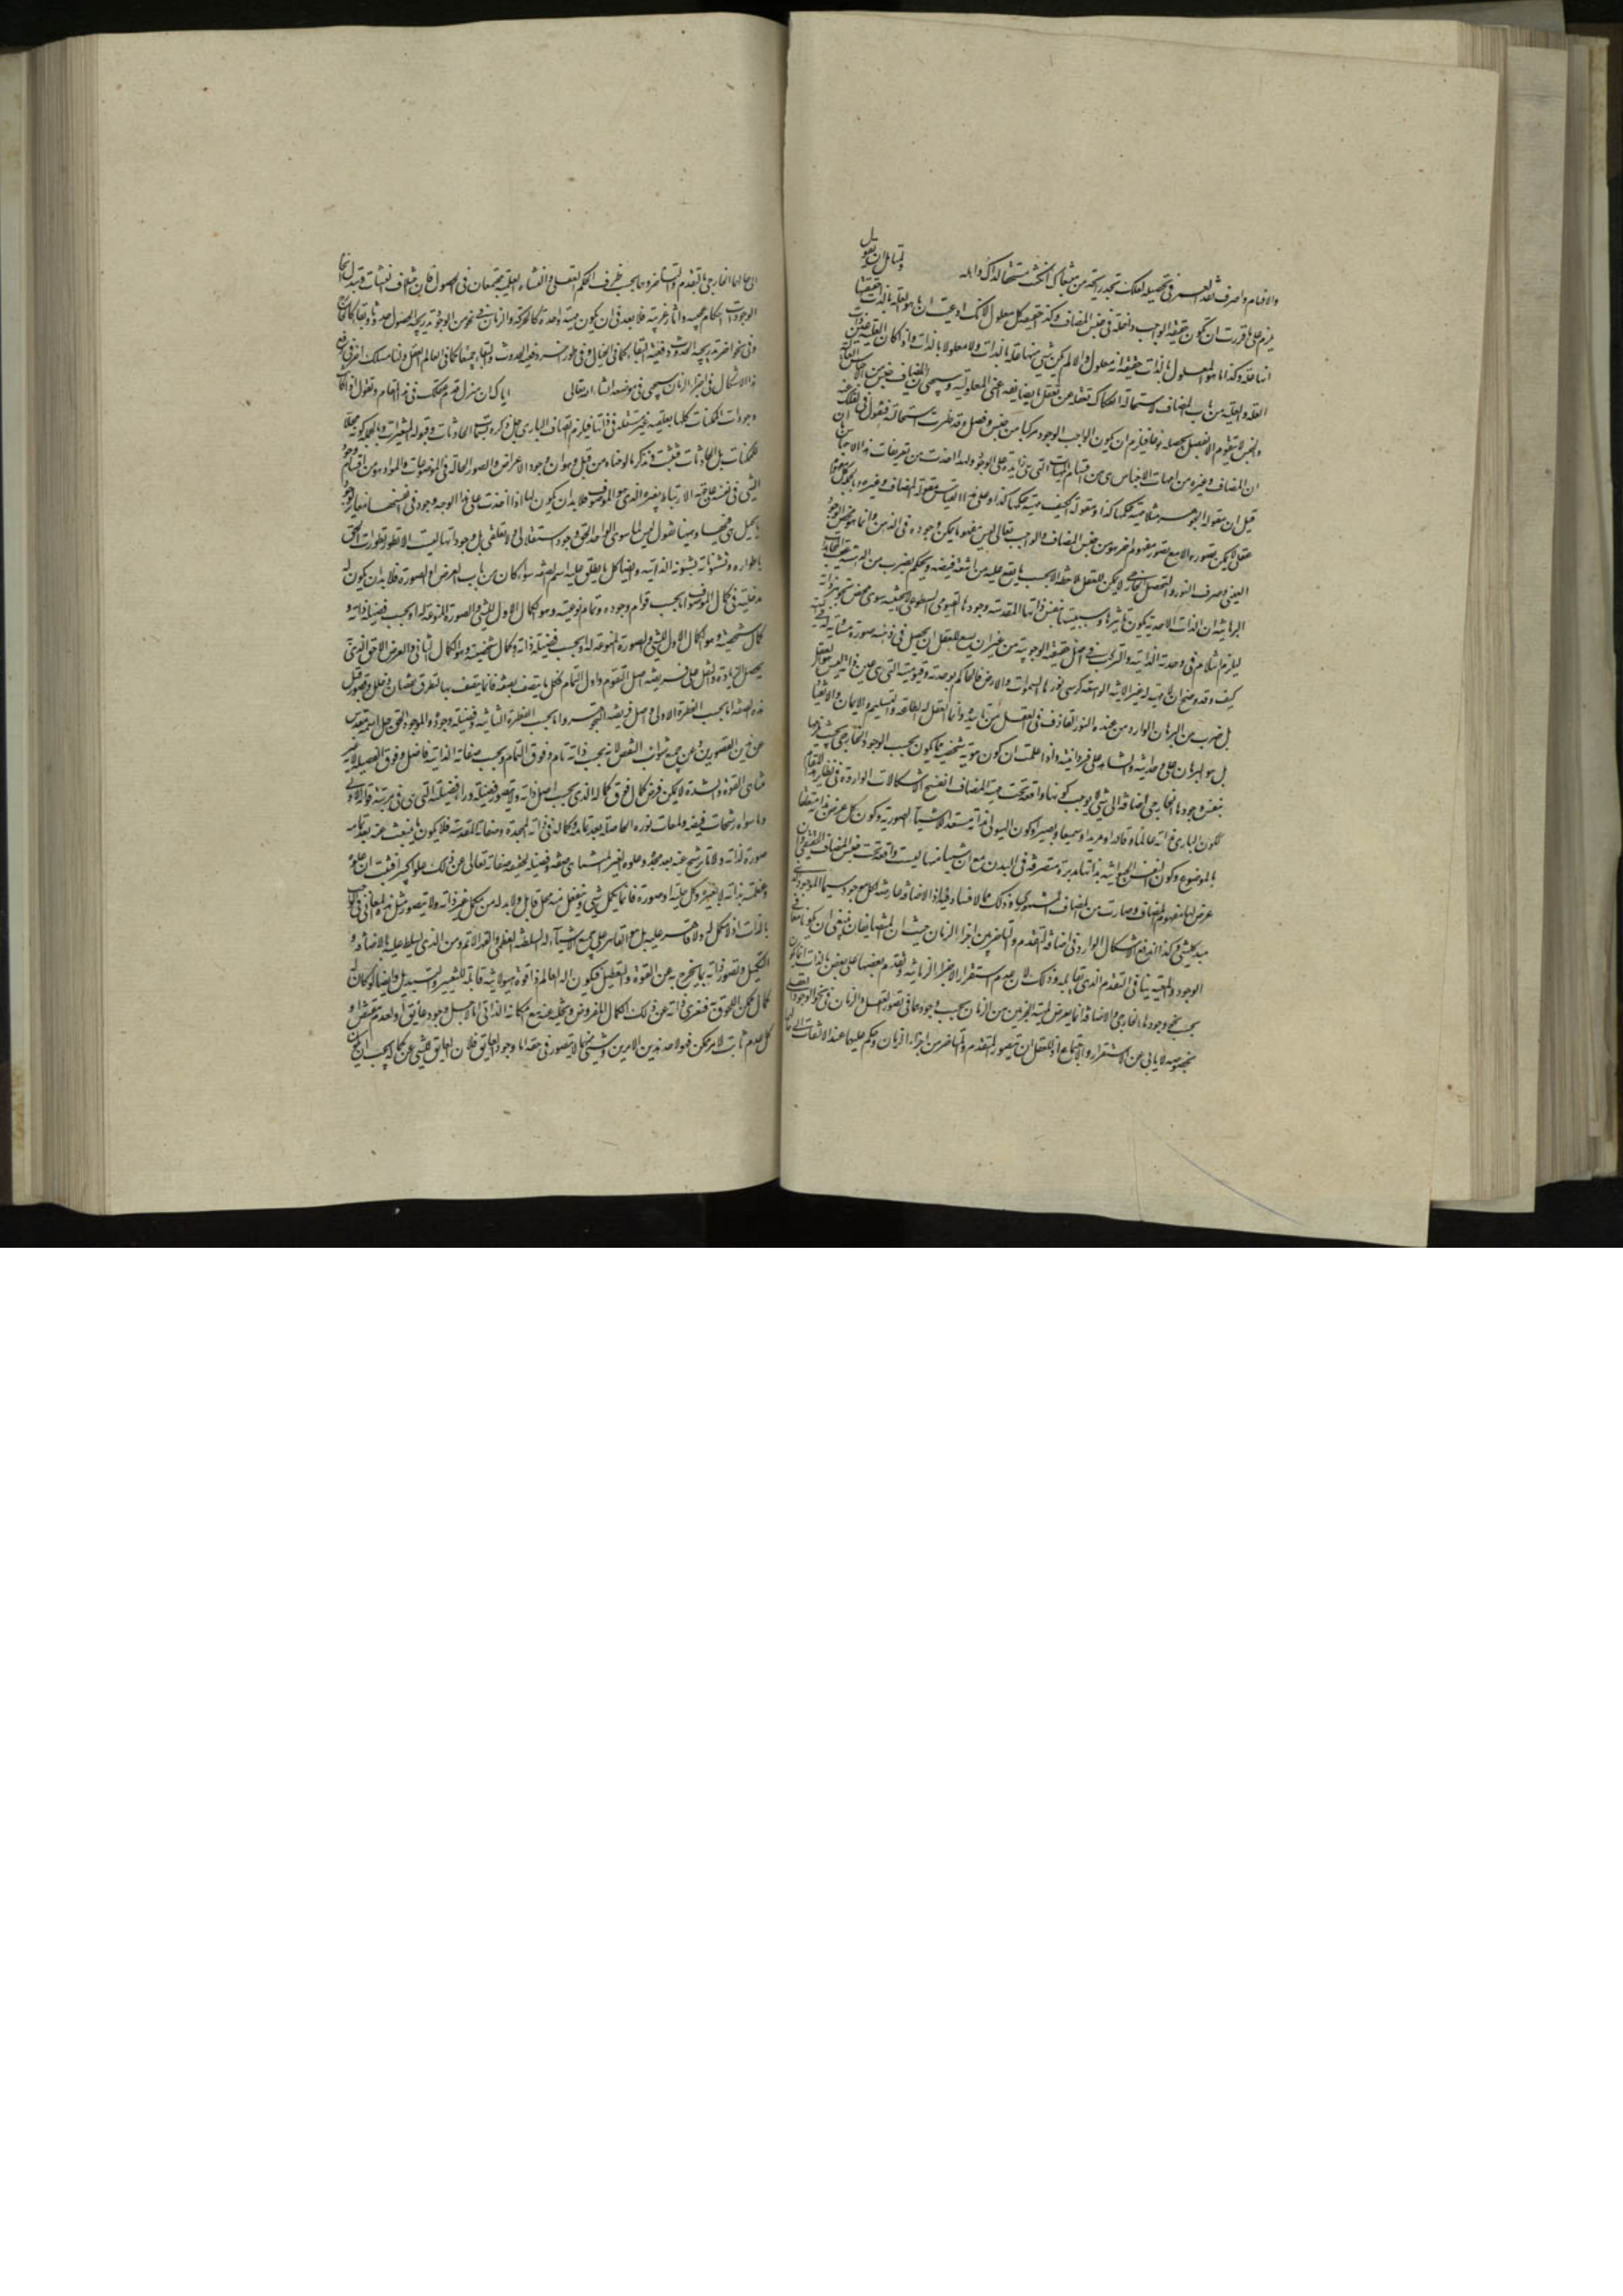 والاقسام واصرف نقد العمر في تحصيله لعلك تجد رايحة من مبتغاك ان كنت مستحقا لذلك واهله ولقائل ان يقول
يلزم على ما قررت ان تكون حقيقة الواجب داخلة في جنس المضاف وكذا حقيقة كل معلول لانك ادعيت ان ما هو العلة بالذات حقيقتها
انها علة وكذا ما هو المعلول بالذات حقيقته انه معلول والا لم يكن شي منها علة بالذات ولا معلولا بالذات واذا كان العلية عين ذات
العلة والعلية من باب المضاف لاستحالة انفكاك تعقله عن تعقل ما يضايفه اعني المعلولية وسيجي ان المضاف جنس من الاجناس العالية
والجنس لا يتقوم الا بفصل يحصله نوعا فيلزم ان يكون الواجب الوجود مركبا من جنس وفصل وقد ظهرت استحالته فنقول في الفك عنه
ان المضاف وغيره من امهات الاجناس هي من اقسام الماهيات التي هي زايدة على الوجود ولهذا اخذت من تعريفات هذه الاجناس بان
قيل ان مقولة الجوهر مثلا ماهية حكمها كذا ومقولة الكيف ماهية حكمها كذا وعلى هذا القياس مقولة المضاف وغيره وبالجملة كل مفهوم
عقلي لا يمكن تصوره الا مع تصور مفهوم اخر هو من جنس المضاف والواجب تعالى ليس مفهوما يمكن وجوده في الذهن وانما هو محض الوجود
العيني وصرف النور والتحصل الخارجي لا يمكن للعقل ملاحظته الا بحسب ما يقع عليه من اشعة فيضه ويحكم بضرب من الدهشة عقيب المجاهدات
البرهانية ان الذات الاحدية يكون تاثيرها وسببيتها بنفس ذاتها المقدسة وجودها القيومي السطوعي لا بحيثية سوى محض تجوهر ذاته
ليلزم انثلام في وحدته الذاتية والتركب في اصل حقيقة الوجوبية من غير ان يسع للعقل ان يحصل في ذهنه صورة مساوية له
كيف وقد وضح ان لا ماهية له غير الانية الواسعة كرسي نورها السموات والارض فالحاكم بوحدته وقيوميته التي هي عين ذاته ليس هو العقل
بل ضرب من البرهان الوارد من عنده والنور القاذف في العقل من تاييده وانما العقل له الطاعة والتسليم والايمان والانقياد
بل هو البرهان على وحدانيته والشاهد على فردانيته واذا علمت ان كون هوية شخصية مما يكون بحسب الوجود الخارجي بحيث يلزمها
بنفس وجودها الخارجي اضافة الى شي لا يوجب كونها واقعة تحت ماهية المضاف انفسخ الاشكالات الواردة في نظاير هذا المقام
ككون الباري بذاته عالما وقادرا ومريدا وسميعا وبصيرا وكون الهيولى بذاته مستعدة للاشيآء الصورية وكون كل عرض بذاته متعلقا
بالموضوع وكون النفس الحيوانية بذاتها مدبرة متصرفة في البدن مع ان شيئا منها ليست واقعة تحت جنس المضاف الحقيقي وان
عرض لها مفهوم المضاف وصارت من المضاف المشهوري وذلك مما لا فساد فيه اذ الاضافة عارضة لكل موجود سيما الموجود الذي
مبدء كل شي وكذا اندفع الاشكال الوارد في اضافة التقدم والتاخر بين اجزاء الزمان حيث ان المتضايفان ينبغي ان يكونا معا في
الوجود والمعية ينافي التقدم الذي يقابله وذلك لان عدم استقرار الاجزاء الزمانية وتقدم بعضها على بعض بالذات انما يكون
بحسب نحو وجودها الخارجي والاضافة انما يعرض لماهية الجزئين من الزمان بحسب وجودهما في تصور العقل والزمان في نحو الوجود العقلي
بخصوصه لا يابى عن الاستقرار والاجتماع اذ للعقل ان يتصور المتقدم والمتاخر من اجزاء الزمان ويحكم عليهما عند الالتفات الى حالهما
الى حالهما الخارجي بالتقدم والتاخر وهما بحسب ظرف الحكم العقلي وانشاء العلية مجتمعان في الحصول فان اختلاف النشآت وتبدل انحاء
الوجودات احكام عجيبة واثار غريبة فلا بعد في ان يكون ماهية واحدة كالحركة والزمان في نحو من الوجود تدريجية الحصول حدوثا وبقاء كالخارج
وفي نحو اخر تدريجية الحدوث دفعية البقاء كما في الخيال وفي طور اخر دفعية الحدوث والبقاء جميعا كما في العالم العقل ولنا مسلك اخر في دفع
هذا الاشكال في اجزاء الزمان سيجي في موضعه ان شاء الله تعالى اياك ان تزل قدم عقلك في هذا المقام وتقول اذا كانت
وجودات الممكنات كلها تعلقية غير مستقلة في ذاتها فيلزم اتصاف الباري جل ذكره بسمة الحادثات وقبوله للتغيرات وبالجملة كونه محلا
للممكنات بل الحادثات فتثبت وتذكر ما لوحناه من قبل وهو ان وجود الاعراض والصور الحالة في الموضوعات والمواد هو من اقسام وجود
الشي في نفسه على جهة الارتباط بغيره الذي هو الموصوف فلا بد ان يكون لها اذا اخذت على هذا الوجه وجود في انفسها مغاير لوجود
ما يحل هي فيها وههنا نقول ليس لما سوى الواحد الحق وجود لا استقلالي ولا تعلقي بل وجوداتها ليست الا تطورات الحق
باطواره وتشؤناته بشؤنه الذاتية وايضا كل ما يطلق عليه اسم الصفة سواء كان من باب العرض او الصورة فلا بد ان يكون له
مدخلية في كمال الموصوف اما بحسب قوام وجوده وتمام نوعيته وهو الكمال الاول للشي والصورة المنوعة له او بحسب فضيلة ذاته و
كمال شخصيته وهو الكمال الثاني والعرض اللاحق الذي
يحصل الزيادة والنفل على فريضة اصل التقوم واول التمام فكل ما يتصف بصفة فانما يتصف بها لتطرق نقصان وخلل وقصور قبل
هذه الصفة اما بحسب الفطرة الاولى واصل فريضة التجوهر واما بحسب الفطرة الثانية وفضيلة وجوده والموجود الحق جل اسمه مقدس
عن هذين القصورين وعن جميع شوائب النقص لانه بحسب ذاته تام وفوق التمام وبحسب صفاته الذاتية فاضل وفوق الفضيلة لانه غير
متناهي القوة والشدة لا يمكن فرض كمال فوق كماله الذي بحسب اصل ذاته ولا يتصور فضيلة وراء فضيلته التي هي في مرتبة قوامه الاولى
وما سواه رشحات فيضه ولمعات نوره الحاصلة بعد تمامه وكماله في ذاته المجدة وصفاته المقدسة فلا يكون ما ينبعث عنه بعد تمامه
صورة لذاته ولا ما يترشح عنه بعد مجده وعلوه الغير المتناهي صفة وفضيلة لحقيقة صفاته تعالى عن ذلك علوا كبيرا فثبت ان علوه
وعظمته بذاته لا بغيره وكل حلية او صورة فانما يكمل بها شي وينفعل منه محل قابل ولا بد له من مكمل غير ذاته ولا يتصور مثل هذه المعاني في الواجب
بالذات اذ لا مكمل له ولا قاسر عليه بل هو القاهر على جميع الاشيآء له السلطنة العظمى والقهر الاتم ومن الذي يسلط عليه بالافاضة و
التكميل وتصور ذاته بما يخرج به عن القوة والتعطيل فيكون اله العالم ذا قوة هيولانية قابلة للتغيير والتبديل وايضا لو كان له
كمال ممكن اللحوق فتعرى ذاته عن ذلك الكمال المفروض ويخلو عنه مع امكانه الذاتي اما لاجل وجود عايق او لعدم مقتض او
كل عدم ثابت لامر ممكن فهو لاحد هذين الامرين وشي منهما لا يتصور في حقه اما وجود العايق فلان العايق للشي عن كماله يجب ان يكون